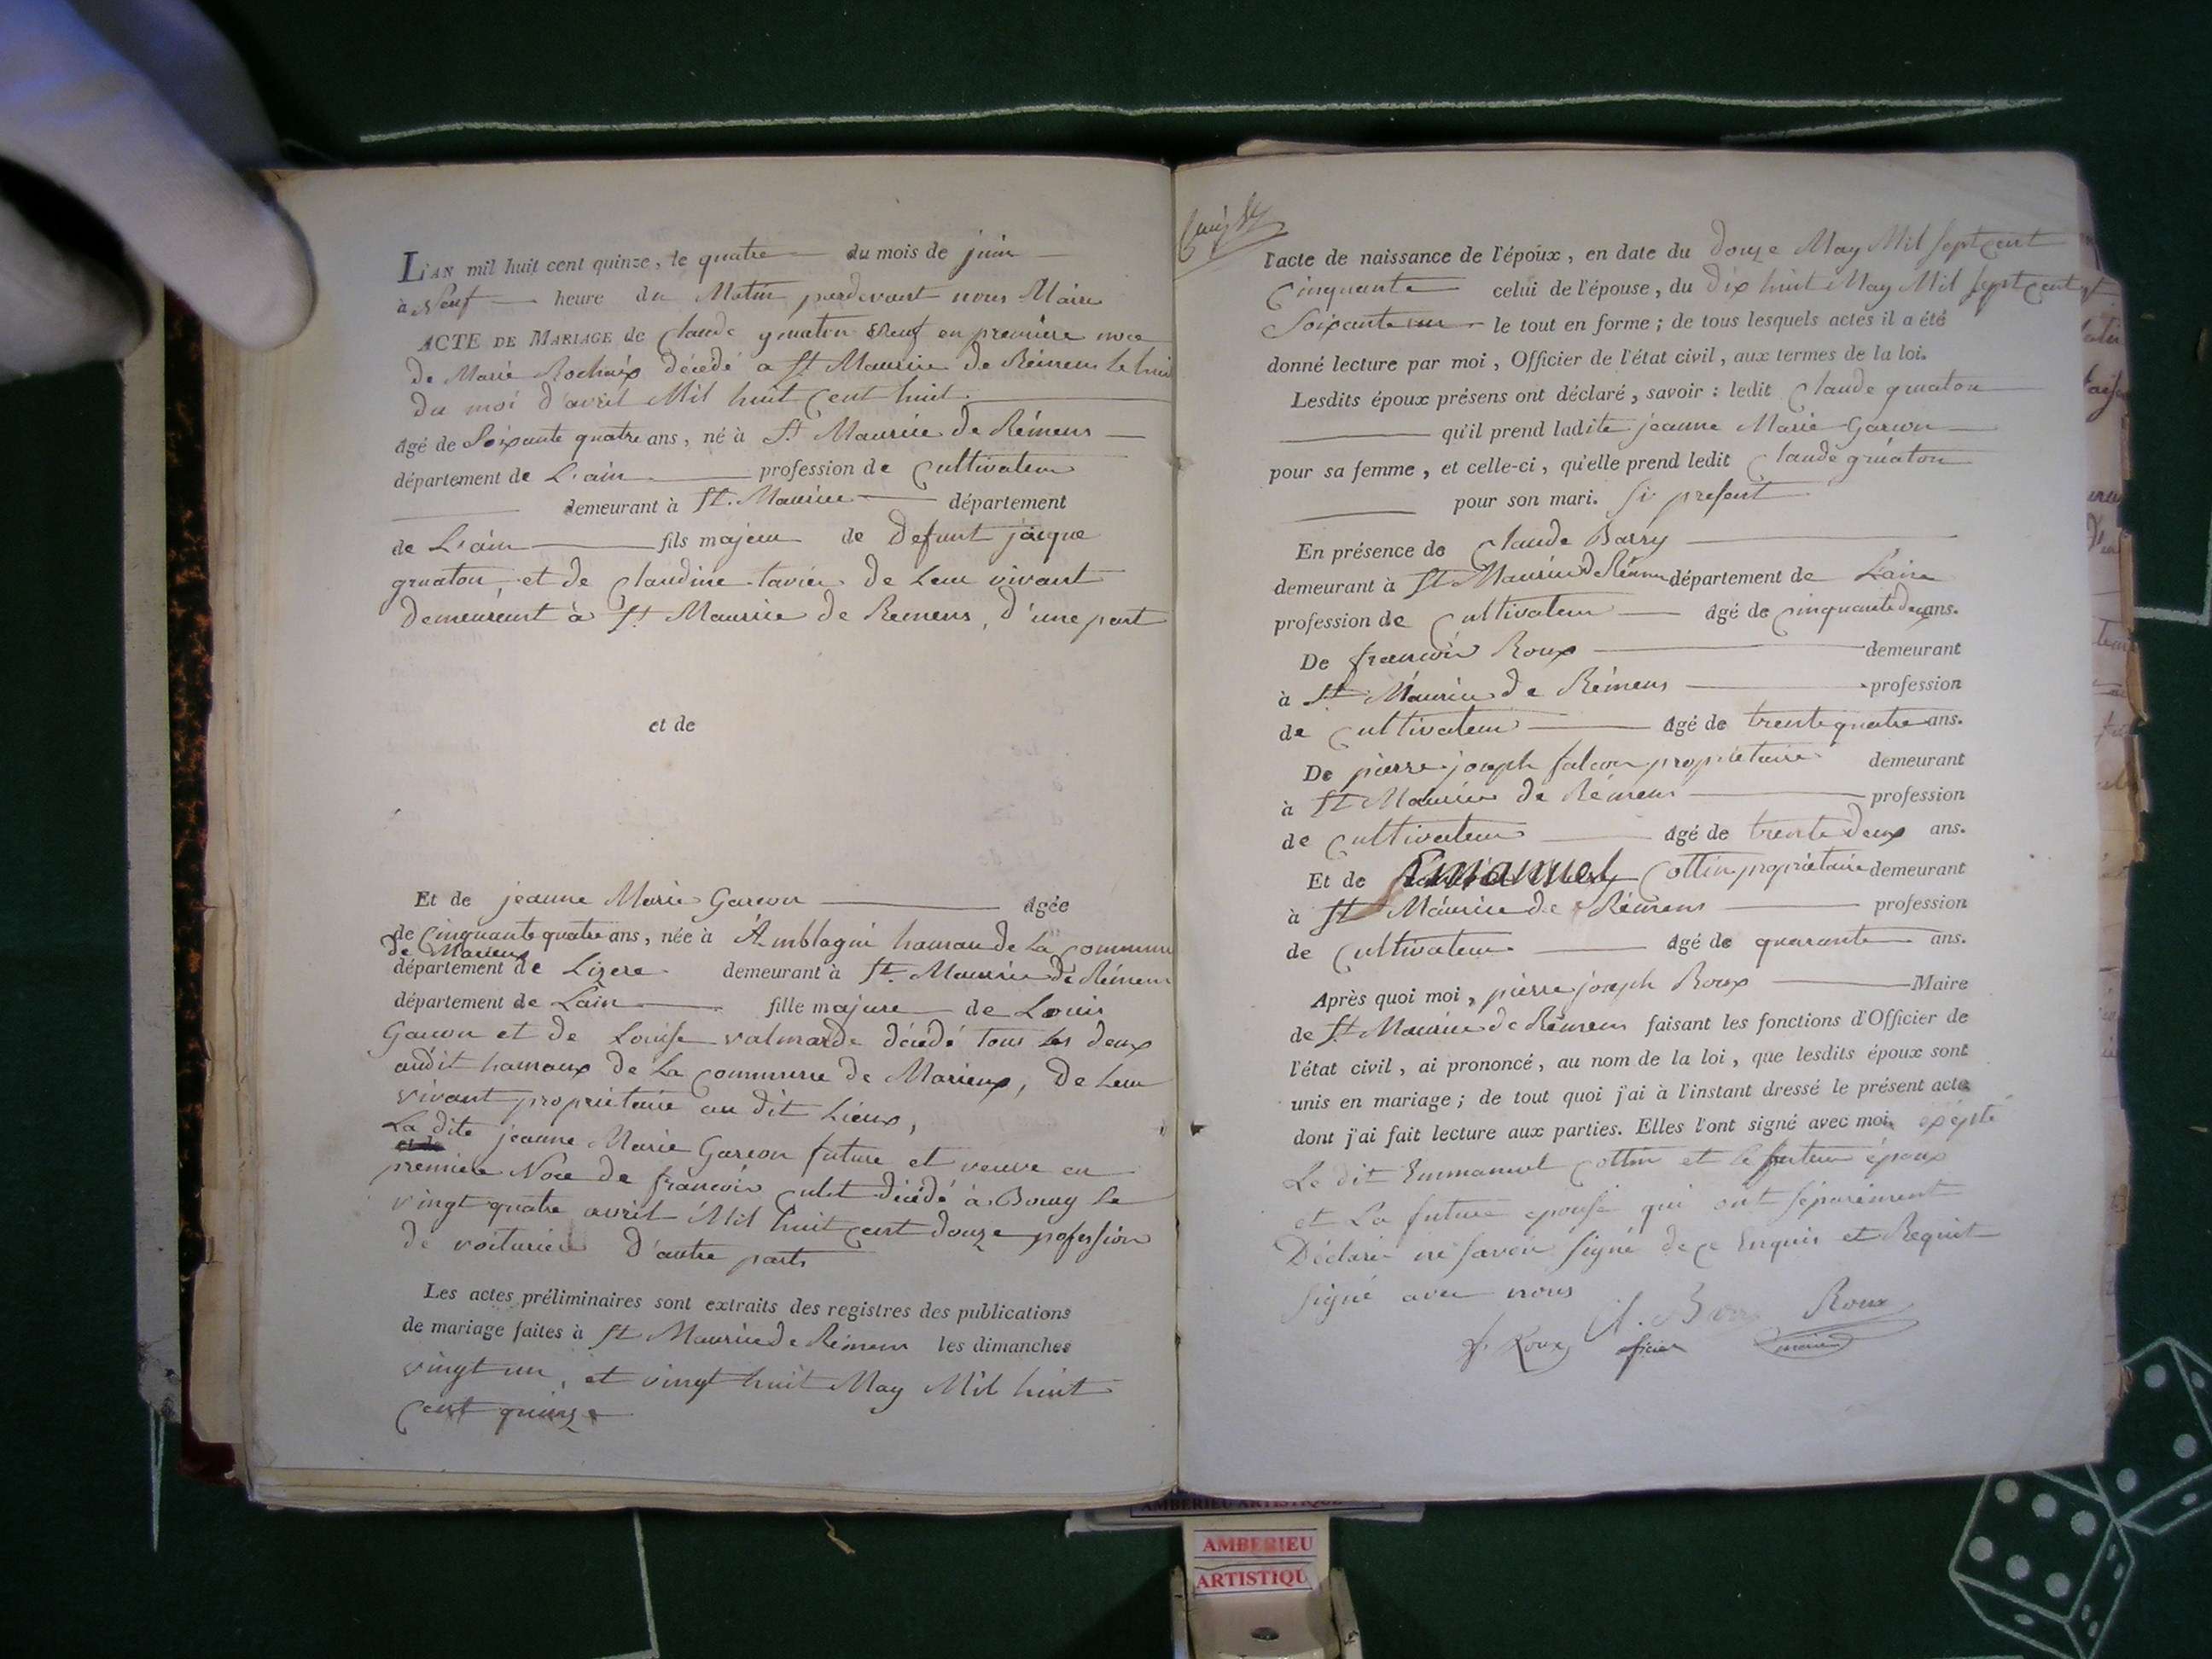 L'AN mil huit cent quinze, le quatre du mois de juin
à Neuf heure du Matin pardevant nous Maire
ACTE DE MARIAGE de Claude gruaton veuf en première noce
de Marie Rochaix décédé a St Maurice de Rémens le huit
du moi d'avril Mil huit Cent huit.
âgé de Soixante quatre ans, né à St Maurice de Rémens
département de L'ain profession de Cultivateur
demeurant à St. Maurice département
de L'ain fils majeur de Defunt jacque
gruaton et de Claudine tavier de Leur vivant
Demeurant à St Maurice de Remens, d'une part
et de
Et de jeanne Marie Garcon âgée
de Cinquante quatre ans, née à Amblagni hamau de La Commune
de Marieux
département de Lizere demeurant à St. Maurice de Rémens
département de Lain fille majure de Louis
Garcon et de Louise valmarde décédé tous les deux
audit hamaux de La Commune de Marieux, De Leur
vivant proprietaire au dit Lieux,
La dite jeanne Marie Garcon future et veuve en
premiere Noce de francois Culet décédé à Bourg le
vingt quatre avril Mil huit Cent douze profession
de voiturier d'autre parts
Les actes préliminaires sont extraits des registres des publications
de mariage faites à St Maurice de Rémens les dimanches
vingt un, et vingt huit May Mil huit
Cent quinze
l'acte de naissance de l'époux, en date du douze May Mil Sept Cent
Cinquante celui de l'épouse, du dix huit May Mil Sept Cent
Soixante un le tout en forme ; de tous lesquels actes il a été
donné lecture par moi, Officier de l'état civil, aux termes de la loi.
Lesdits époux présens ont déclaré, savoir : ledit Claude gruaton
qu'il prend ladite jeanne Marie Garcon
pour sa femme, et celle-ci, qu'elle prend ledit Claude gruaton
pour son mari. Si présent
En présence de Claude Barry
demeurant à St Maurice de Rémens département de Lain
profession de Cultivateur âgé de Cinquante deux ans.
De francois Roux demeurant
à St Maurice de Rémens profession
de Cultivateur âgé de trente quatre ans.
De pierre joseph falcon proprietaire demeurant
à St Maurice de Rémens profession
de Cultivateur âgé de trente deux ans.
Et de Emanuel Cottin propriétaire demeurant
à St Maurice de Rémens profession
de Cultivateur âgé de quarante ans.
Après quoi moi, pierre joseph Roux Maire
de St Maurice de Rémens faisant les fonctions d'Officier de
l'état civil, ai prononcé, au nom de la loi, que lesdits époux sont
unis en mariage ; de tout quoi j'ai à l'instant dressé le présent acte
dont j'ai fait lecture aux parties. Elles l'ont signé avec moi, exépté
Le dit Emmanuel Cottin et le futeur époux
et La future épouse qui ont séparément
Déclaré ne savoir signé de ce Enquis et Requit
signé avec nous
f. Roux Roux
maire
AMBERIEU ARTISTIQUE
AMBERIEU
ARTISTIQU